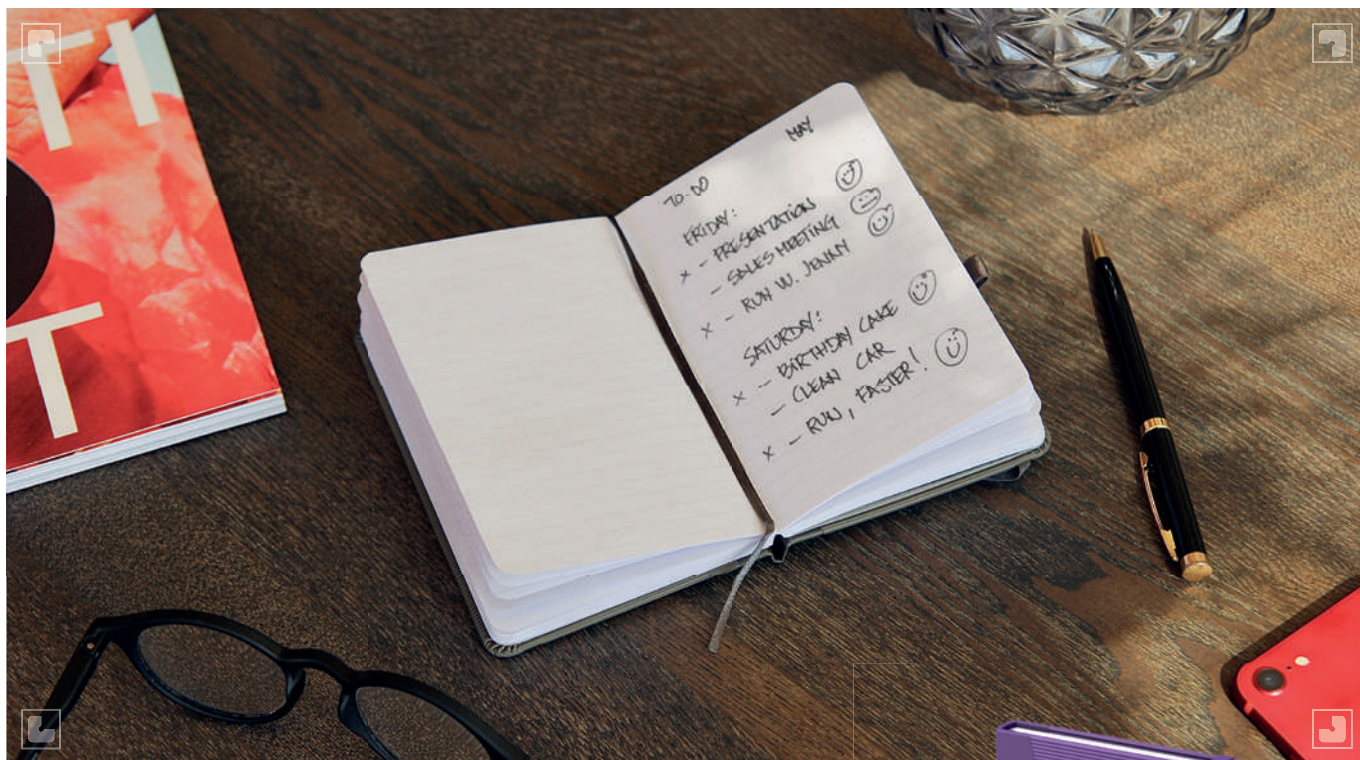 TI
T
MAY
10.00
FRIDAY:
x - PRESENTATION
- SALES MEETING
x - RUN W. JENNY
SATURDAY:
x - BIRTHDAY CAKE
- CLEAN CAR
x - RUN, FASTER!